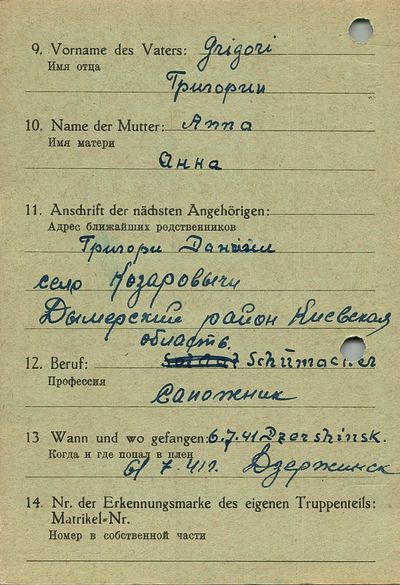 9. Vorname des Vaters: Grigori
Имя отца
Григории
10. Name der Mutter: Anna
Имя матери
Анна
11. Anschrift der nächsten Angehörigen:
Адрес ближайших родственников
Григори Даниил
село Козаровычи
Дымерский район Киевская
область.
12. Beruf: Schumacher
Профессия
Сапожник
13 Wann und wo gefangen: 6.7.41 Dzershinsk.
Когда и где попал в плен
6/ 7. 41 г. Дзержинск
14. Nr. der Erkennungsmarke des eigenen Truppenteils:
Matrikel-Nr.
Номер в собственной части